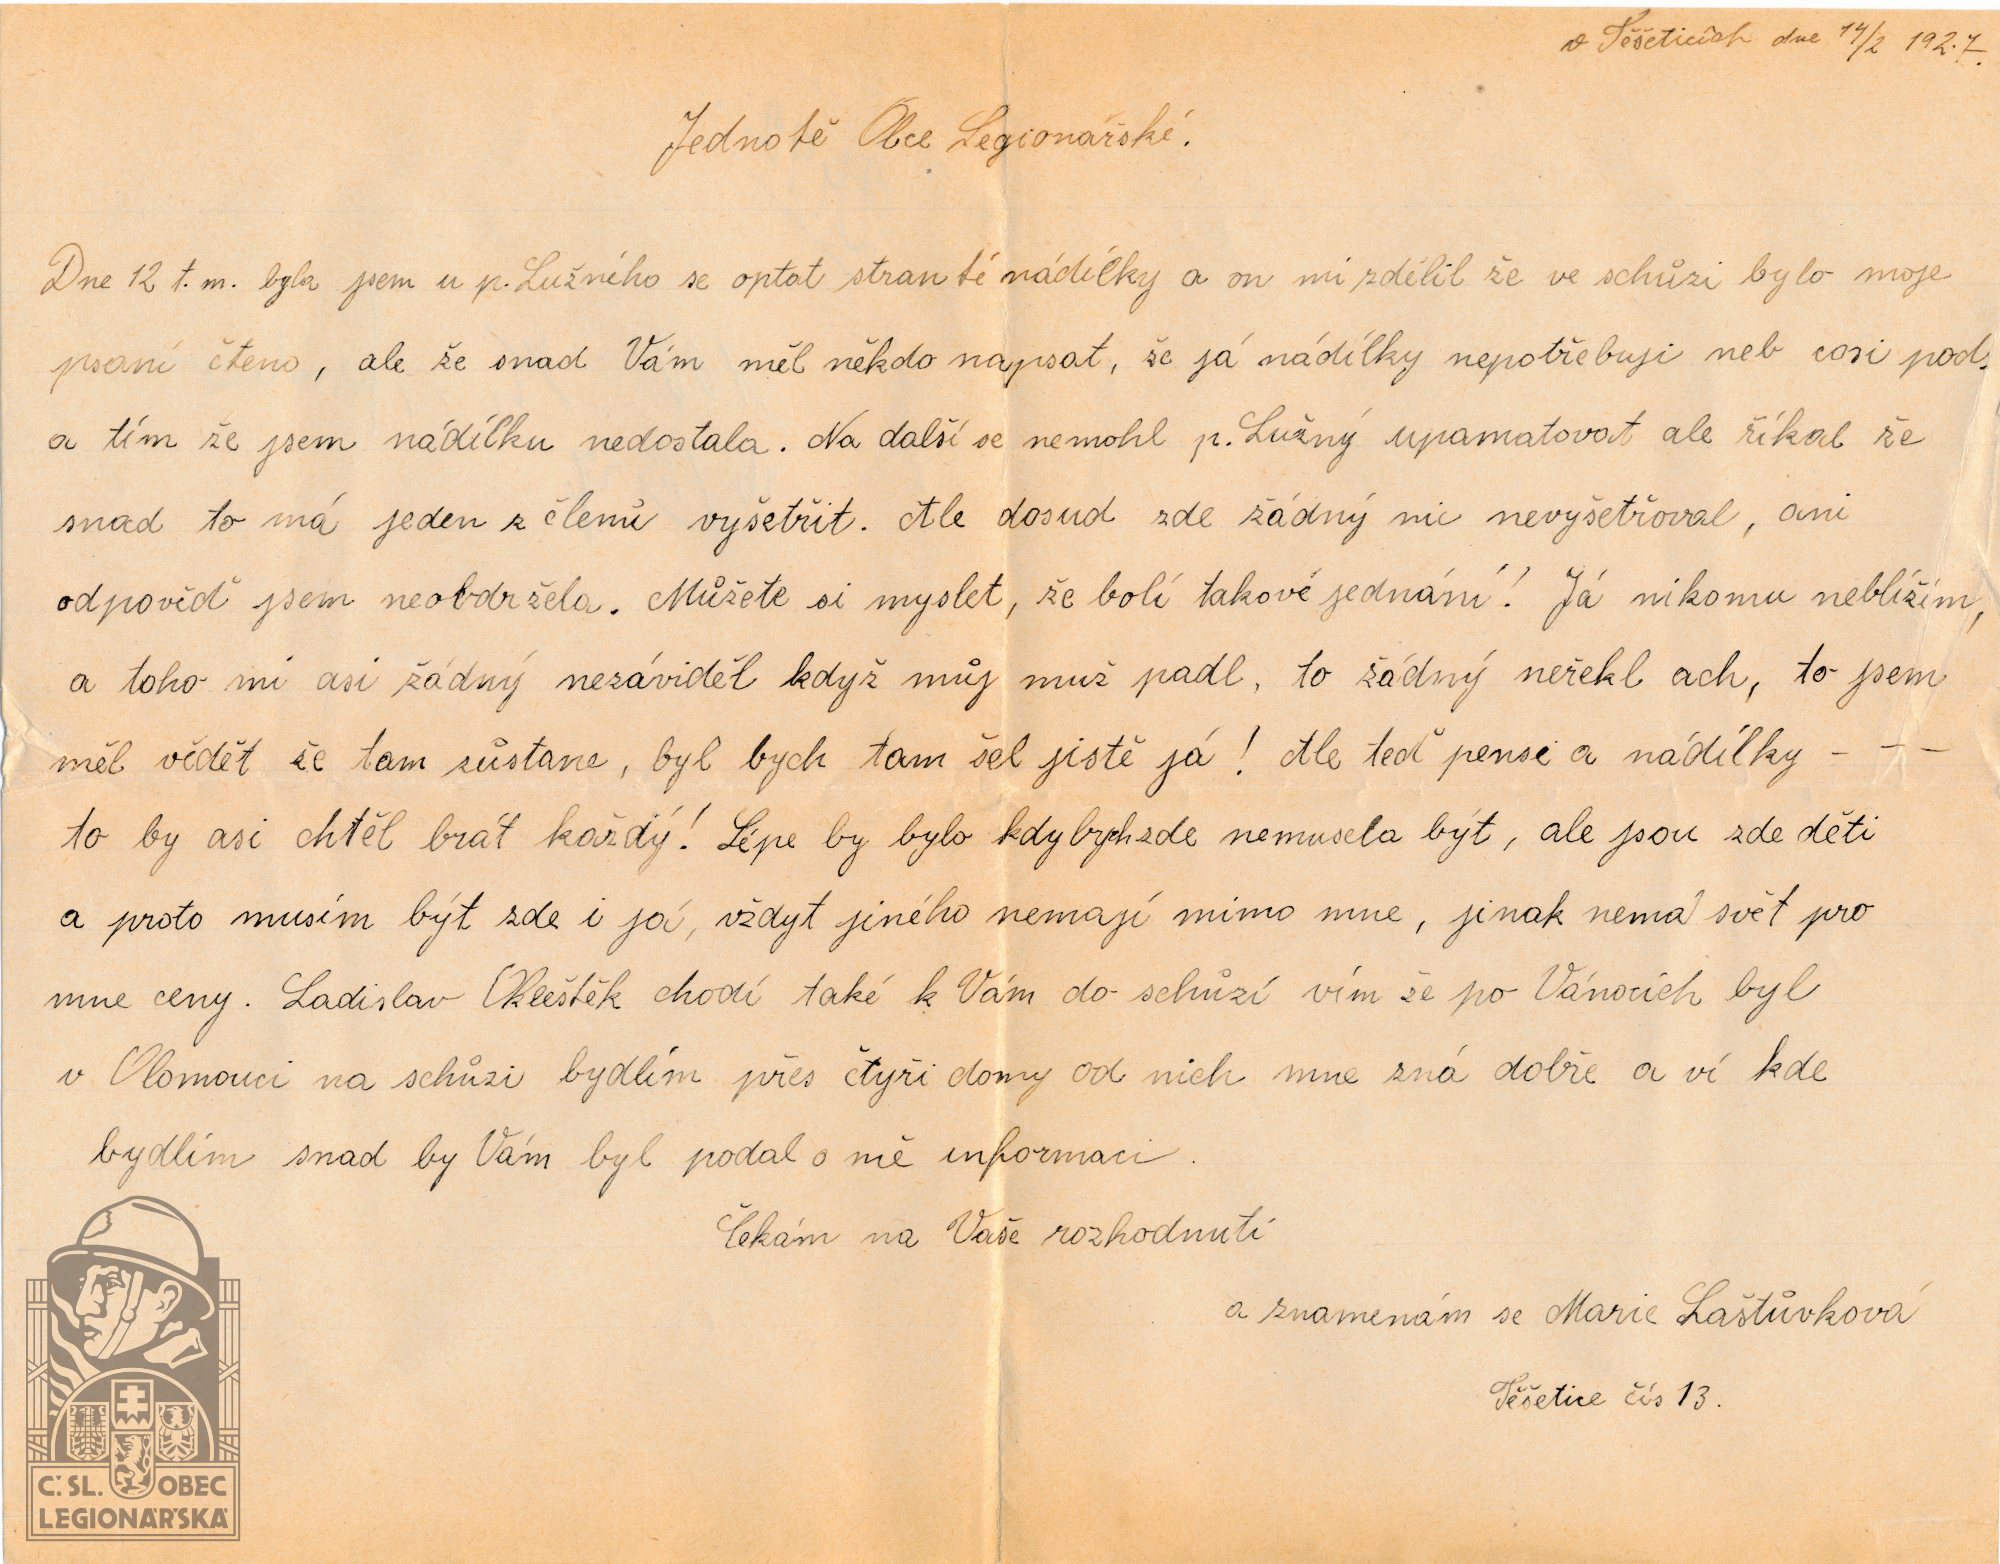 v Těšeticích dne 14/2 1927.
Jednotě Obce Legionářské.
Dne 12 t.m. byla jsem u p. Lužného se optat stran té nádílky a on mi zdělil že ve schůzi bylo moje
psaní čteno, ale že snad Vám měl někdo napsat, že já nádílky nepotřebuji neb cosi pod.
a tím že jsem nádílku nedostala. Na další se nemohl p. Lužný upamatovat ale říkal že
snad to má jeden z členů vyšetřit. Ale dosud zde žádný nic nevyšetřoval, ani
odpověď jsem neobdržela. Můžete si myslet, že bolí takové jednání! Já nikomu neblížím,
a toho mi asi žádný nezáviděl když můj muž padl, to žádný neřekl ach, to jsem
měl vědět že tam zůstane, byl bych tam šel jistě já! Ale teď pensi a nádílky - - -
to by asi chtěl brát každý! Lépe by bylo kdybych zde nemusela být, ale jsou zde děti
a proto musím být zde i já, vždyt jiného nemají mimo mne, jinak nemá svět pro
mne ceny. Ladislav Okleštěk chodí také k Vám do schůzí vím že po Vánocích byl
v Olomouci na schůzi bydlím přes čtyři domy od nich mne zná dobře a ví kde
bydlím snad by Vám byl podal o mě informaci.
Čekám na Vaše rozhodnutí
a znamenám se Marie Laštůvková
Těšetice čís 13.
Č. SL. OBEC
LEGIONÁŘSKÁ